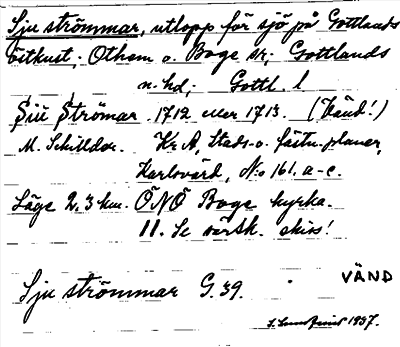 Sju strömmar, utlopp för sjö på Gottlands
östkust; Othem o. Boge sk; Gottlands
n. hd; Gottl. l
Siú Strömar 1712 eller 1713. (Vänd!)
M. Schilldor. Kr A, Stads- o. fästn. planer,
Karlsvärd, N:o 161. a-c.
Läge 2.3 km. ÖNÖ Boge kyrka.
11. Se särsk. skiss!
Sju strömmar G. 39. VÄND
1937.